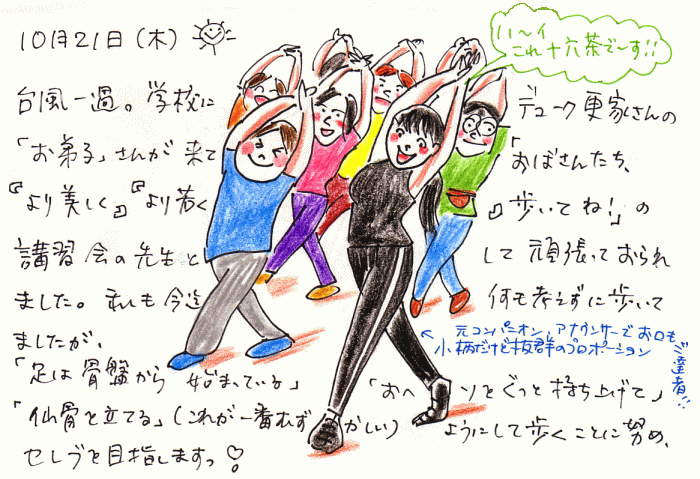 10月21日(木)
ハ〜イ
これ十六茶で〜す!!
台風一過。学校に デューク更家さんの
「お弟子」さんが来て 「おばさんたち、
『より美しく』『より若く』歩いてね!」の
講習会の先生として頑張っておられ
ました。私も今迄何も考えずに歩いて
ましたが、
元コンパニオン、アナウンサーでお口も
小柄だけど抜群のプロポーション
ご達者!!
「足は骨盤から始まっている」「おヘソをぐっと持ち上げて」
「仙骨を立てる」(これが一番むずかしい)ようにして歩くことに努め、
セレブを目指しますっ♡